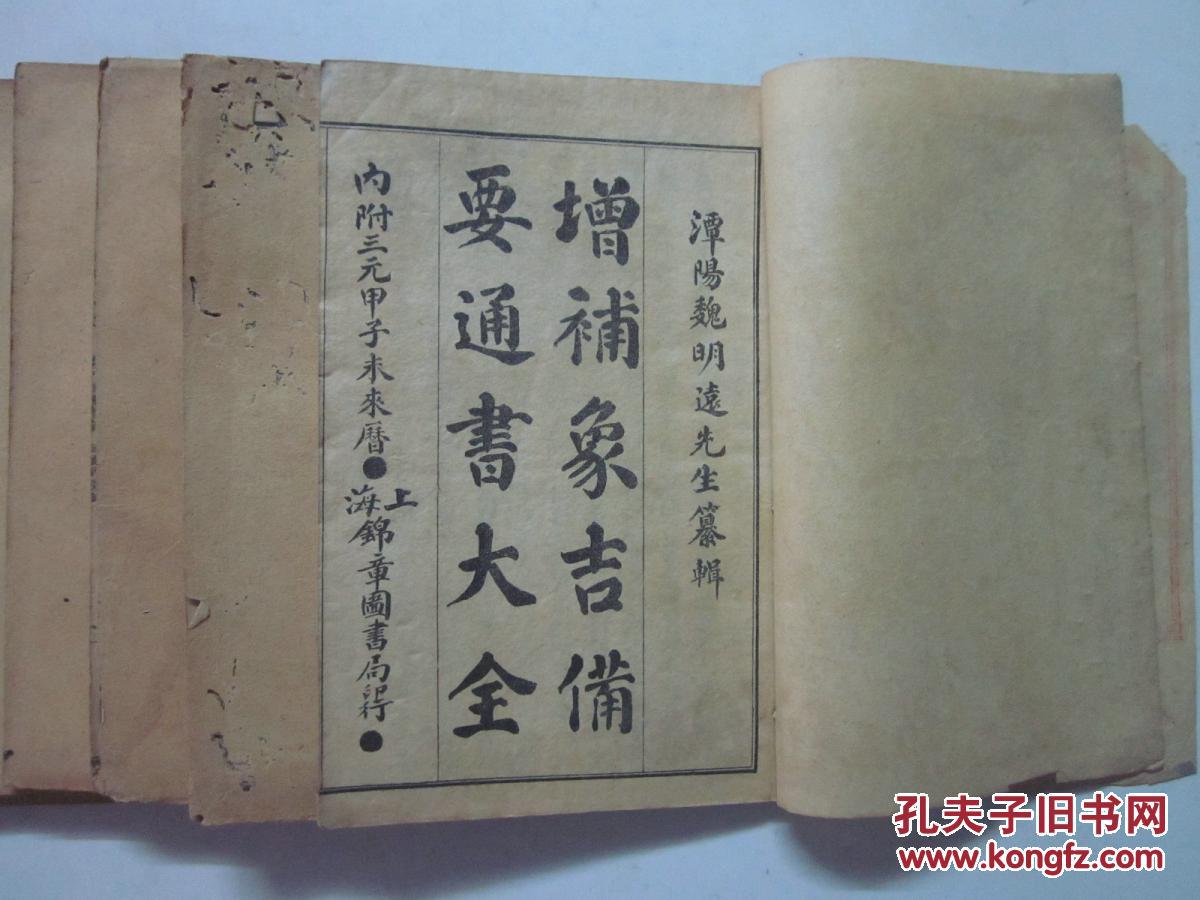 潭陽魏明遠先生纂輯
增補象吉備
要通書大全
內附三元甲子未來曆●上海錦章圖書局印行●
孔夫子旧书网
www.kongfz.com